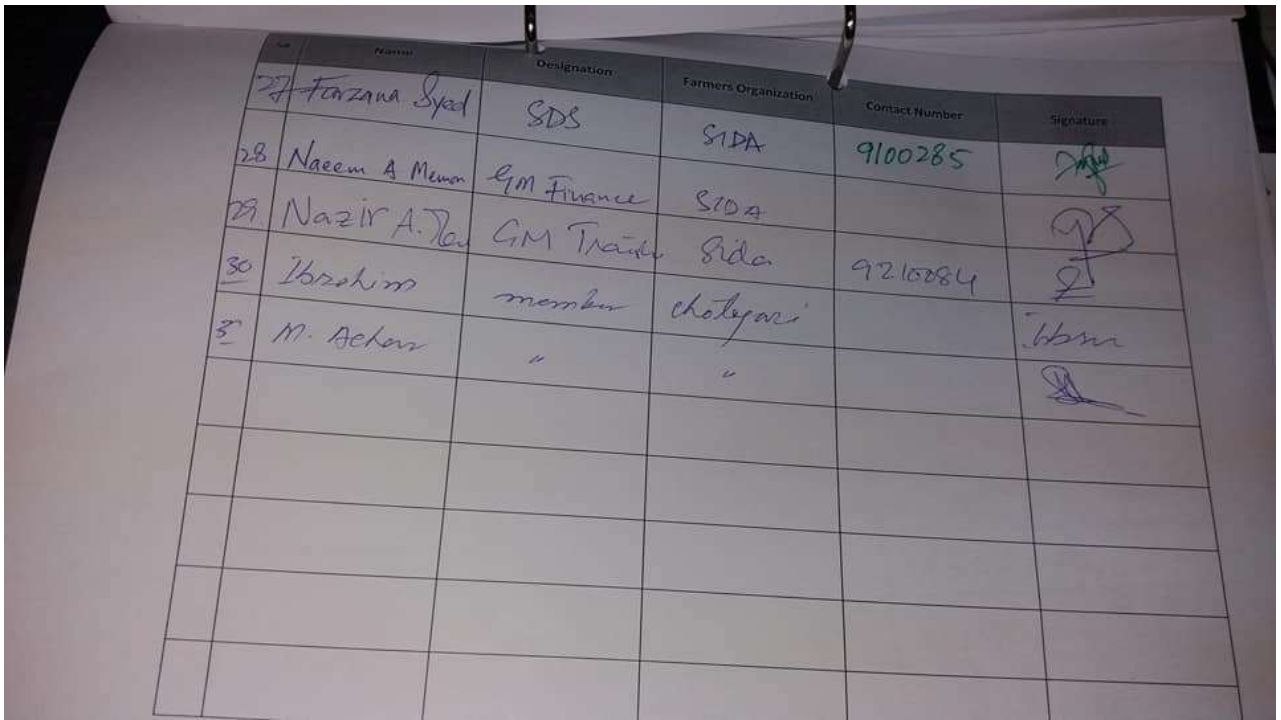 Sr. Name Designation Farmers Organization Contact Number Signature
27 Farzana Syed SDS SIDA 9100285
28 Naeem A Memon GM Finance SIDA
29. Nazir A. GM Sida 9210084
30 Ibrahim member
M. Achar " "